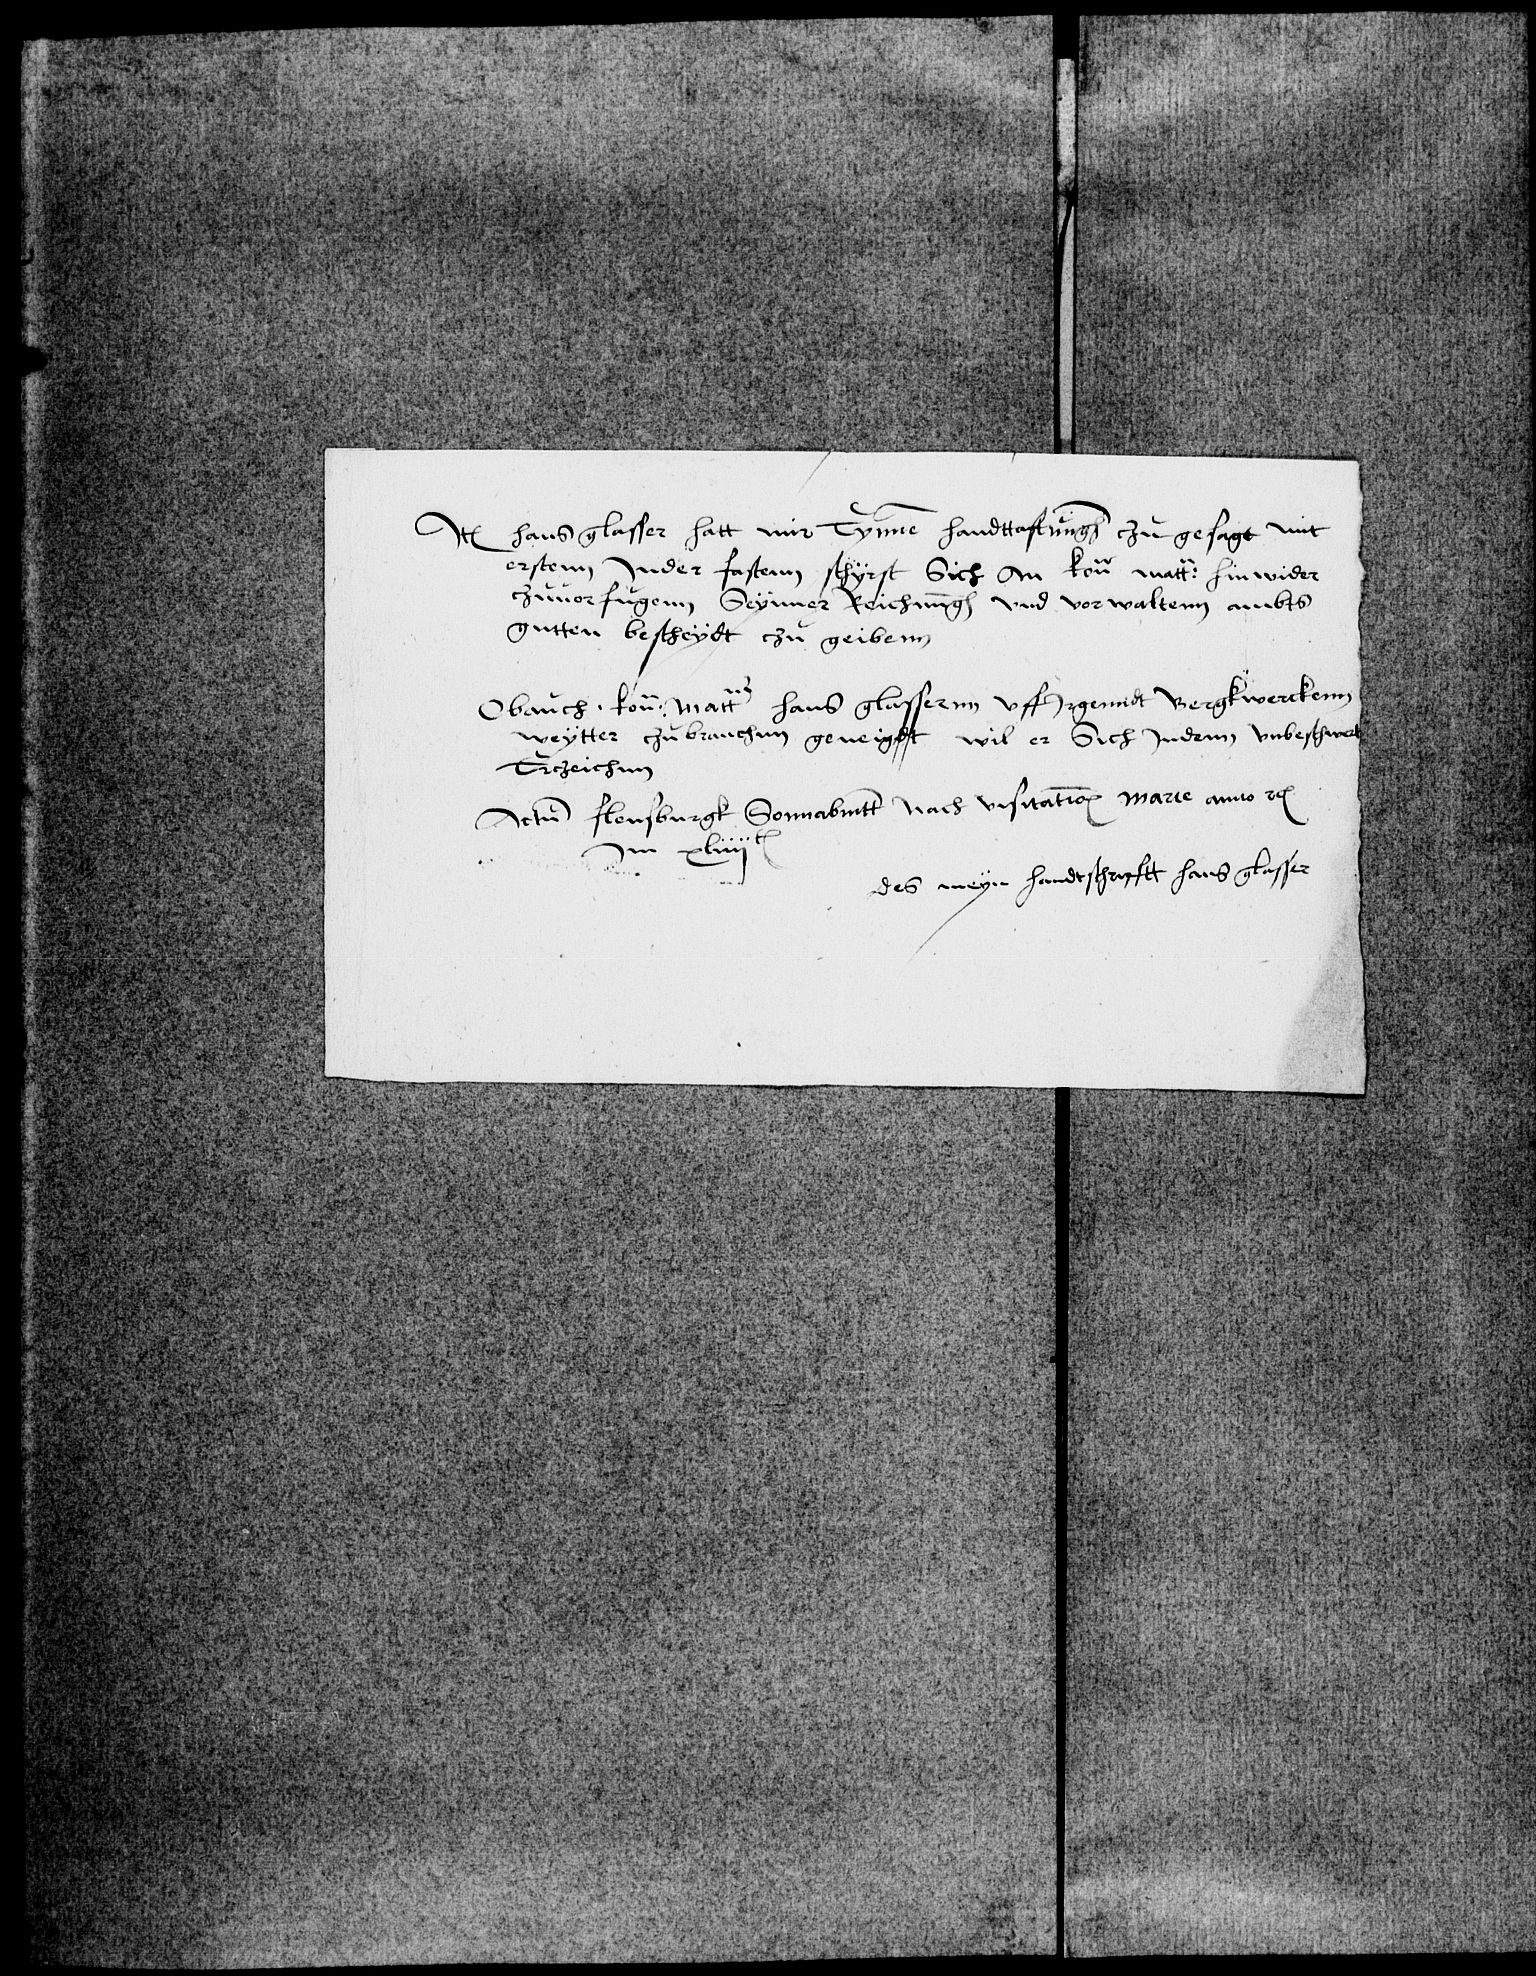 It(em) hans glasser hatt mir Eynne handttastungh czu gesagt mit
erstenn Inder fastenn schyrst Sich An kou matt: hinwider
czuuorfugenn Seynner Reichnungh vnd vorwaltenn ambts
gutten bescheydt czu geibenn
Obauch . kou: Matt hans glassernn vff Irgenndt Bergkwerckenn
weytter czubrauchnn geneigdt wil er Sich Indenn vnbeschwert
Erczeichnn
Actu flensburgk Sonnabentt Nach visitation Marie anno
Im xliiij
des meyn handtschryfft hans glasser